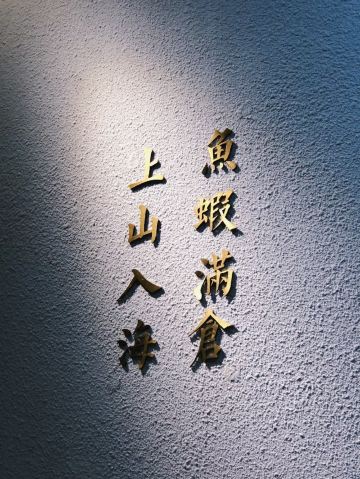 魚蝦滿倉
上山入海